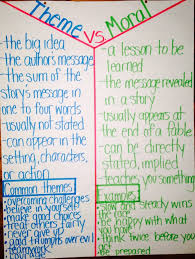 Theme vs Moral
-the big idea
-the authors message
-the sum of the
story's message in
one to four words
-usually not stated
-can appear in the
setting, characters,
or action
Common themes
-overcoming challenges
-believe in yourself
-make good choices
-treat others fairly
-never give up
-good triumphs over evil
-teamwork
-a lesson to be
learned
-the message revealed
in a story
-usually appears at
the end of a fable
-can be directly
stated, implied
-teaches you something
Examples
-slow and steady wins
the race
-be happy with what
you have
-think twice before
you act
-be prepared